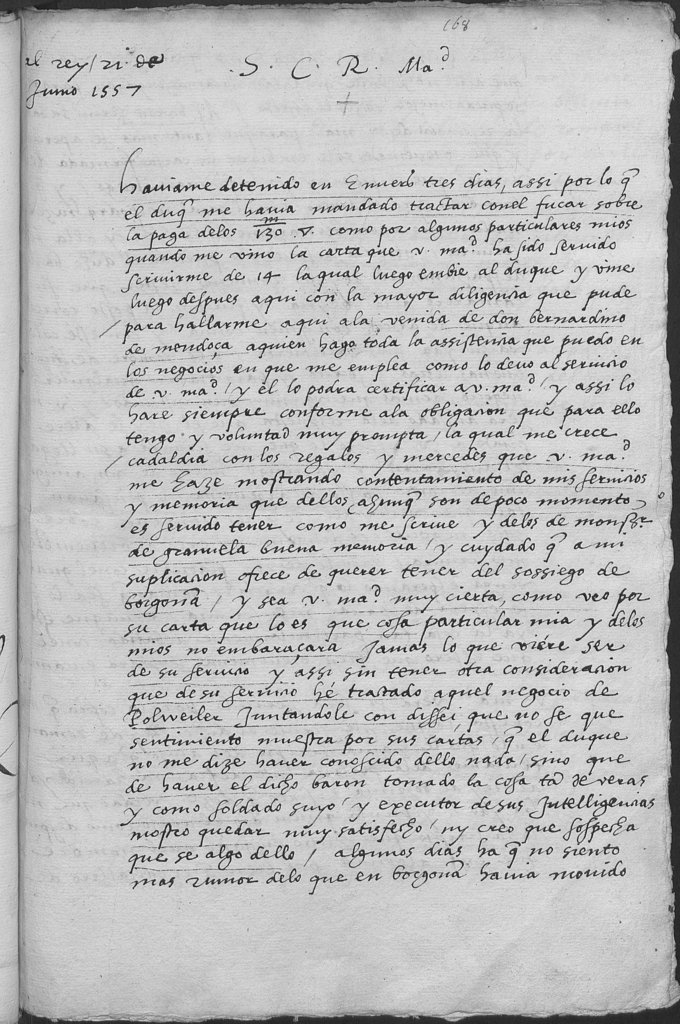 168
al rey / 21 de
Junio 1557
. S . C . R . Mad.
+
Haviame detenido en Envers tres dias, assi por lo q̃
el duq̃ me havia mandado tractar conel fucar sobre
la paga delos 130 m v. como por algunos particulares mios
quando me vino la carta que v. mad. ha sido servido
scrivirme de 14 la qual luego embie al duque y vine
luego despues aqui con la mayor diligencia que pude
para hallarme aqui ala venida de don bernardino
de mendoça aquien hago toda la assistencia que puedo en
los negocios en que me emplea como lo devo al servicio
de v. mad. / y el lo podra certificar a v. mad. / y assi lo
hare siempre conforme ala obligacion que para ello
tengo y voluntad muy prompta / la qual me crece
cadaldia con los regalos y mercedes que v. mad.
me haze mostrando contentamiento de mis servicios
y memoria que dellos ahunq̃ son de poco momento
es servido tener como me scrive y delos de monsr.
de granvela buena memoria / y cuydado q̃ a mi
suplicacion ofrece de querer tener del sossiego de
borgoña / y sea v. mad. muy cierta, como veo por
su carta que lo es que cosa particular mia y delos
mios no embaraçara Jamas lo que viére ser
de su servicio y assi sin tener otra consideracion
que de su servicio hé tractado aquel negocio de
Polweiler Juntandole con disseí que no se que
sentimiento muestra por sus cartas / q̃ el duque
no me dize haver conoscido dello nada / sino que
de haver el dicho baron tomado la cosa tã de veras
y como soldado suyo / y executor de sus Intelligencias
mostro quedar muy satisfecho / ny creo que sospecha
que se algo dello / algunos dias ha q̃ no siento
mas rumor delo que en borgoña havia movido